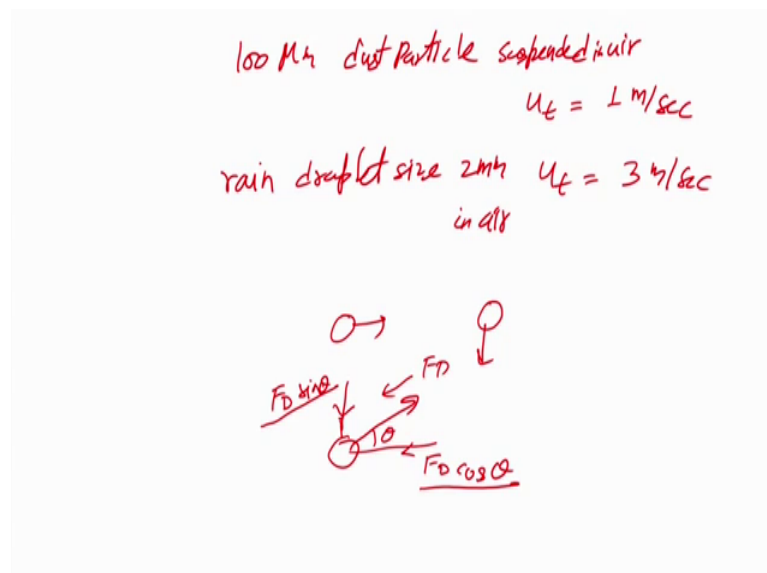 100 μm dust particle suspended in air
u_t = 1 m/sec
rain droplet size 2mm u_t = 3 m/sec
in air
F_D
F_D sinθ
θ
F_D cosθ